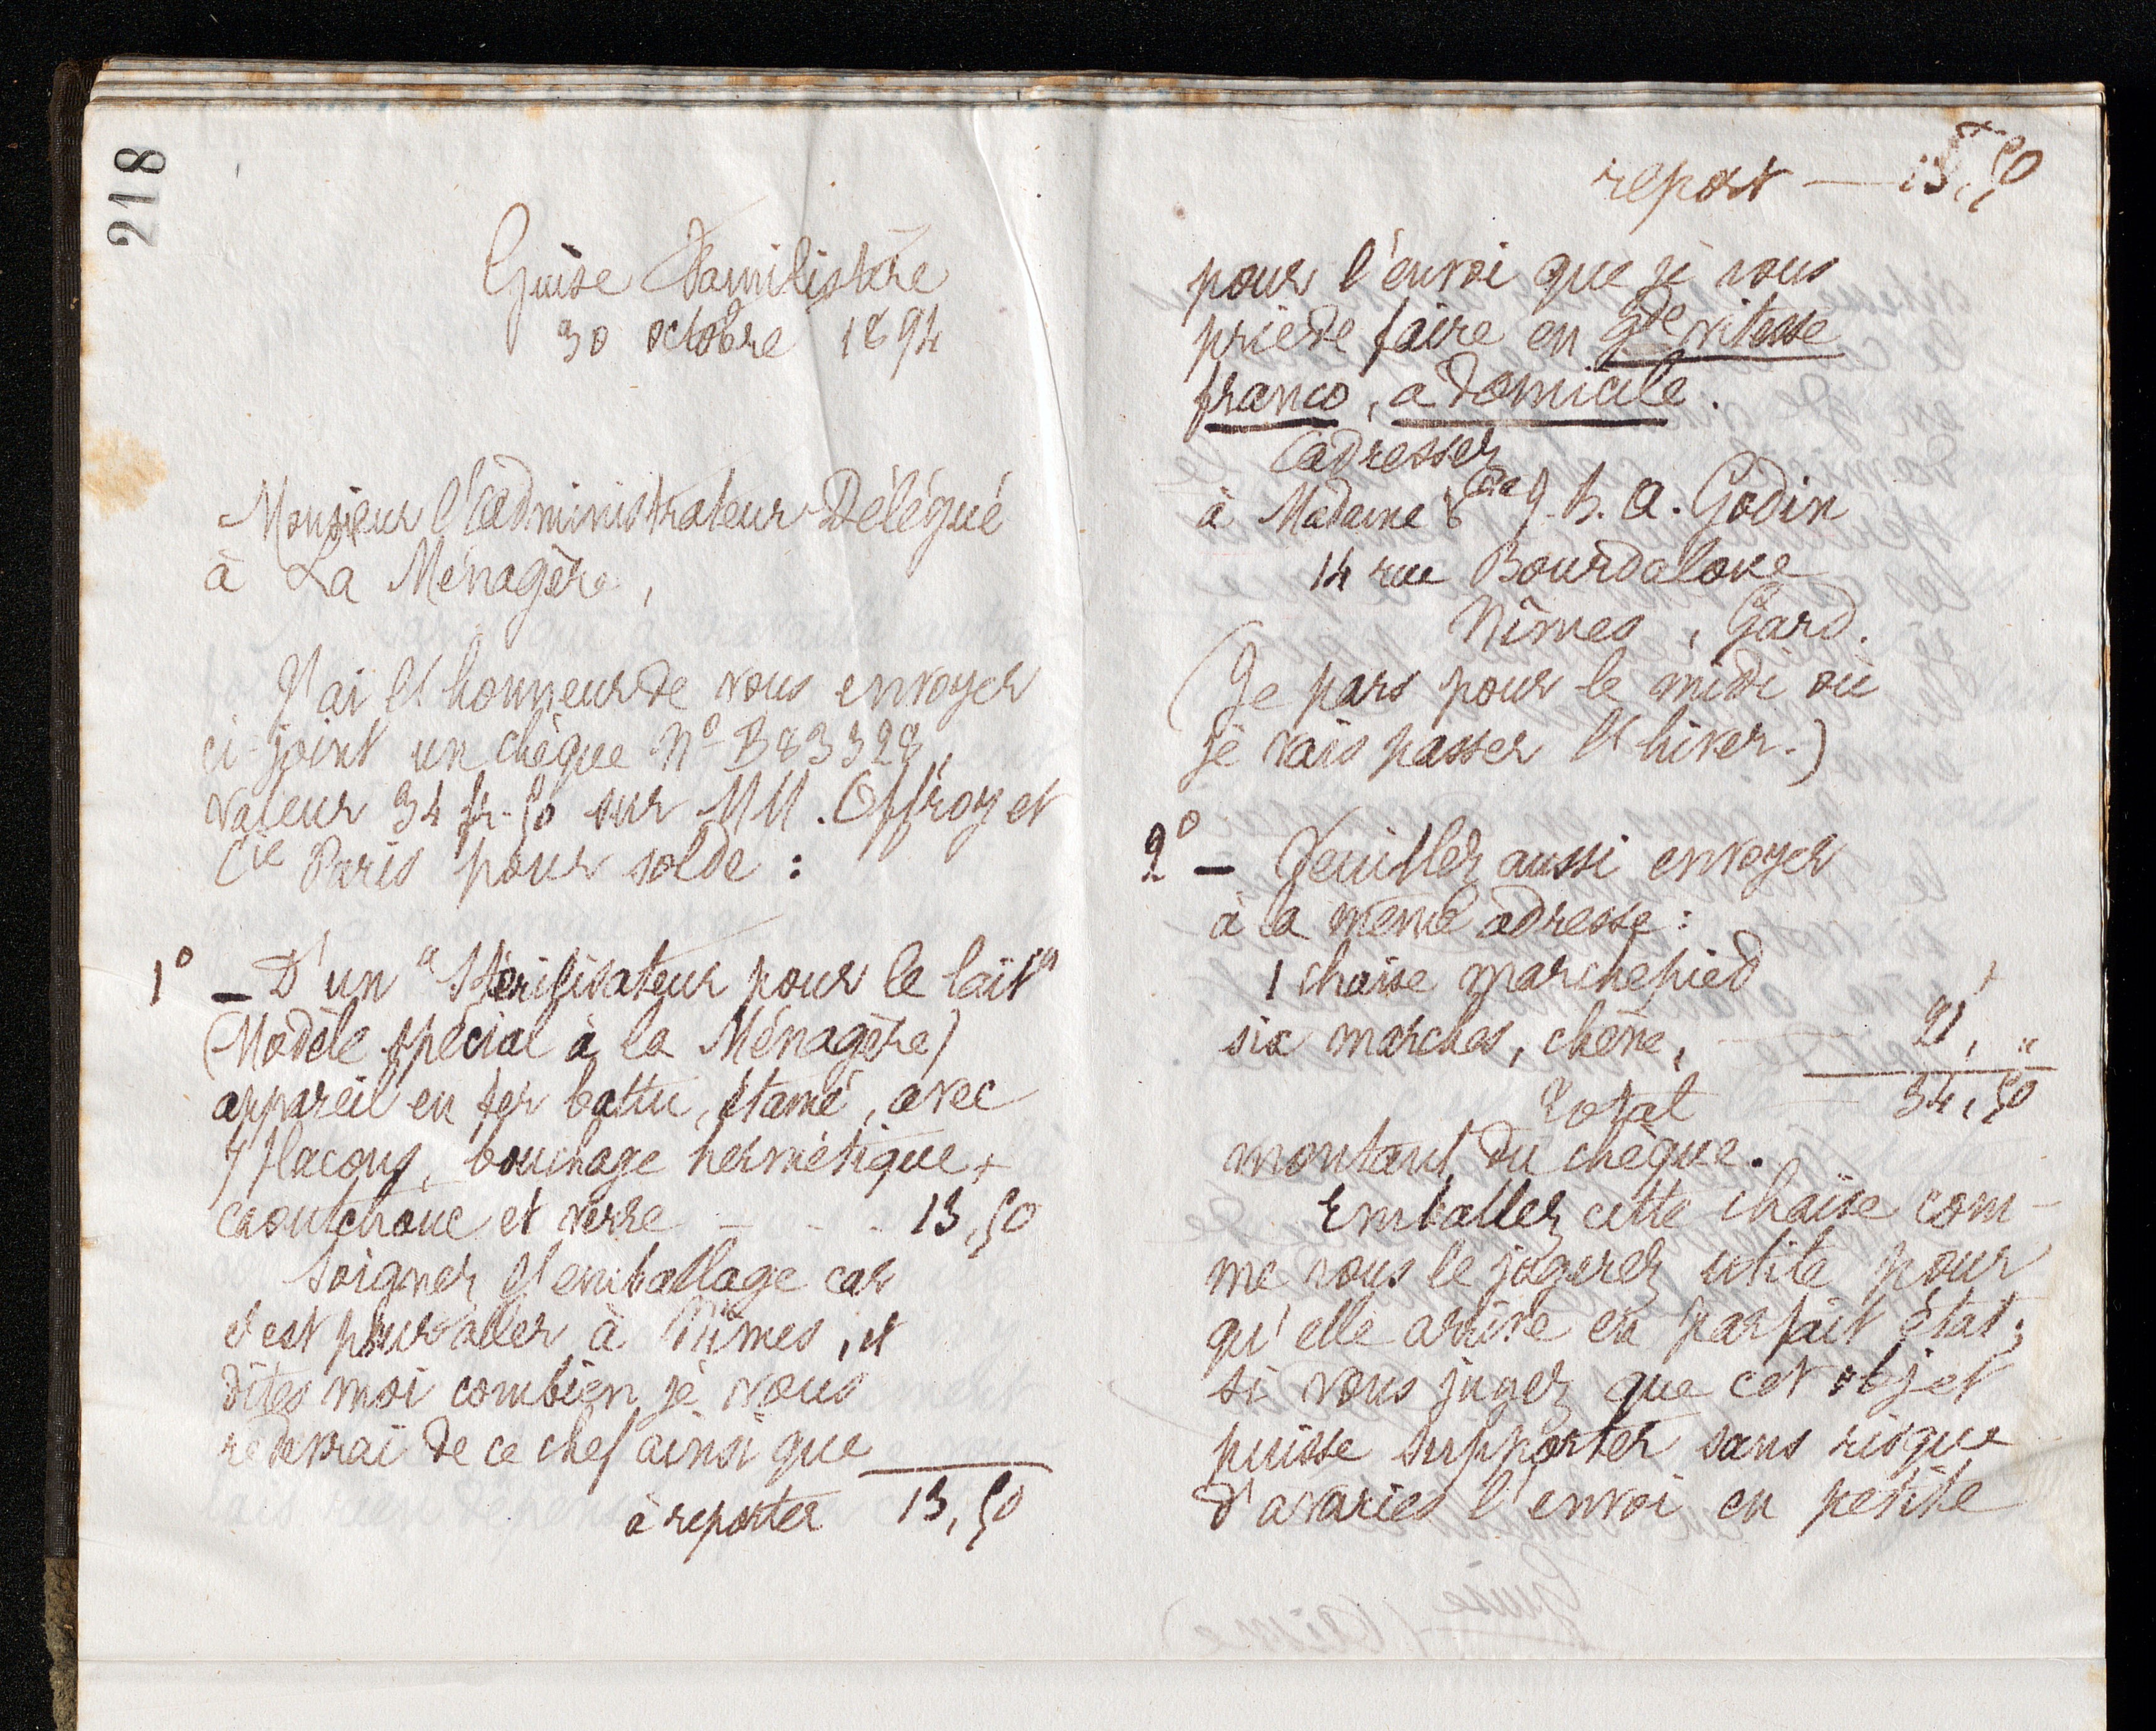 218
Guise Familistère
30 octobre 1894
Monsieur l'Administrateur Délégué
à La Ménagère,
J'ai l'honneur de vous envoyer
ci-joint un chèque No B83328,
valeur 34 fr. 50 sur MM. Offroy et
Cie Paris pour solde :
1o — D'un "Stérilisateur pour le lait"
(Modèle spécial à la Ménagère)
appareil en fer battu, étamé, avec
7 flacons, bouchage hermétique,
caoutchouc et verre - - - 13,50
Soigner l'emballage car
c'est pour aller à Nîmes, et
dites moi combien je vous
redevrai de ce chef ainsi que
à reporter 13,50
report — 13f,50
pour l'envoi que je vous
prie de faire en gde vitesse
franco, a domicile.
adresser
à Madame Vve J. B. A. Godin
14 rue Bourdaloue
Nîmes, Gard.
(Je pars pour le midi où
je vais passer l'hiver.)
2o — Veuillez aussi envoyer
à la même adresse :
1 chaise marchepied
six marches, chêne, — 21, "
Total — 34,50
montant du chèque.
Emballez cette chaise com-
me vous le jugerez utile pour
qu'elle arrive en parfait état ;
si vous jugez que cet objet
puisse supporter sans risque
d'avaries l'envoi en petite